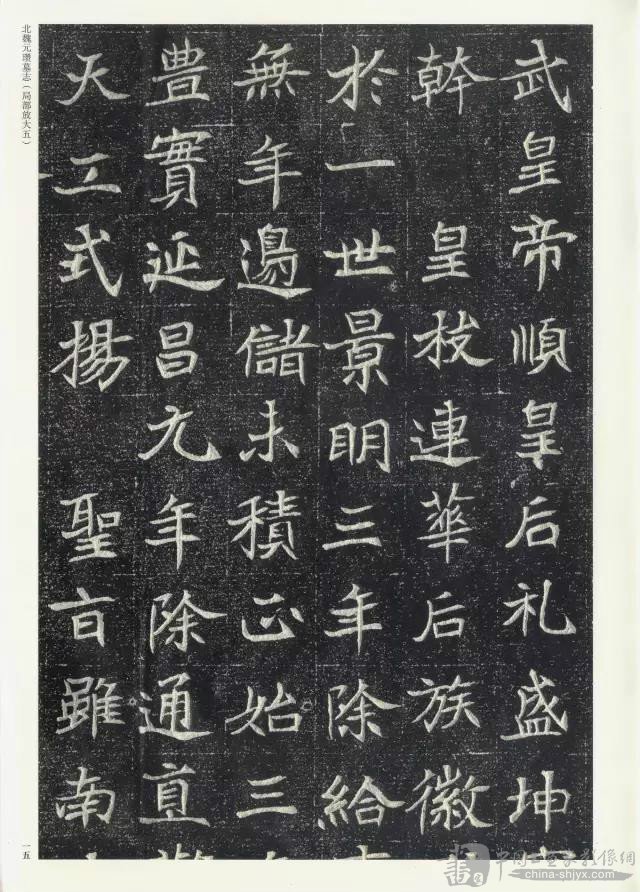 武皇帝順皇后礼盛坤
幹　皇枝連華后族徽
於一世景明三年除給
無年邊儲未積正始三
豊實延昌元年除通直
天工式揚　聖旨雖南
北魏元瓚墓志（局部放大五）
一五
china-shjyx.com